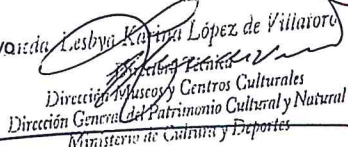 Lesbya Karina López de Villatoro
Dirección Museos y Centros Culturales
Dirección General del Patrimonio Cultural y Natural
Ministerio de Cultura y Deportes